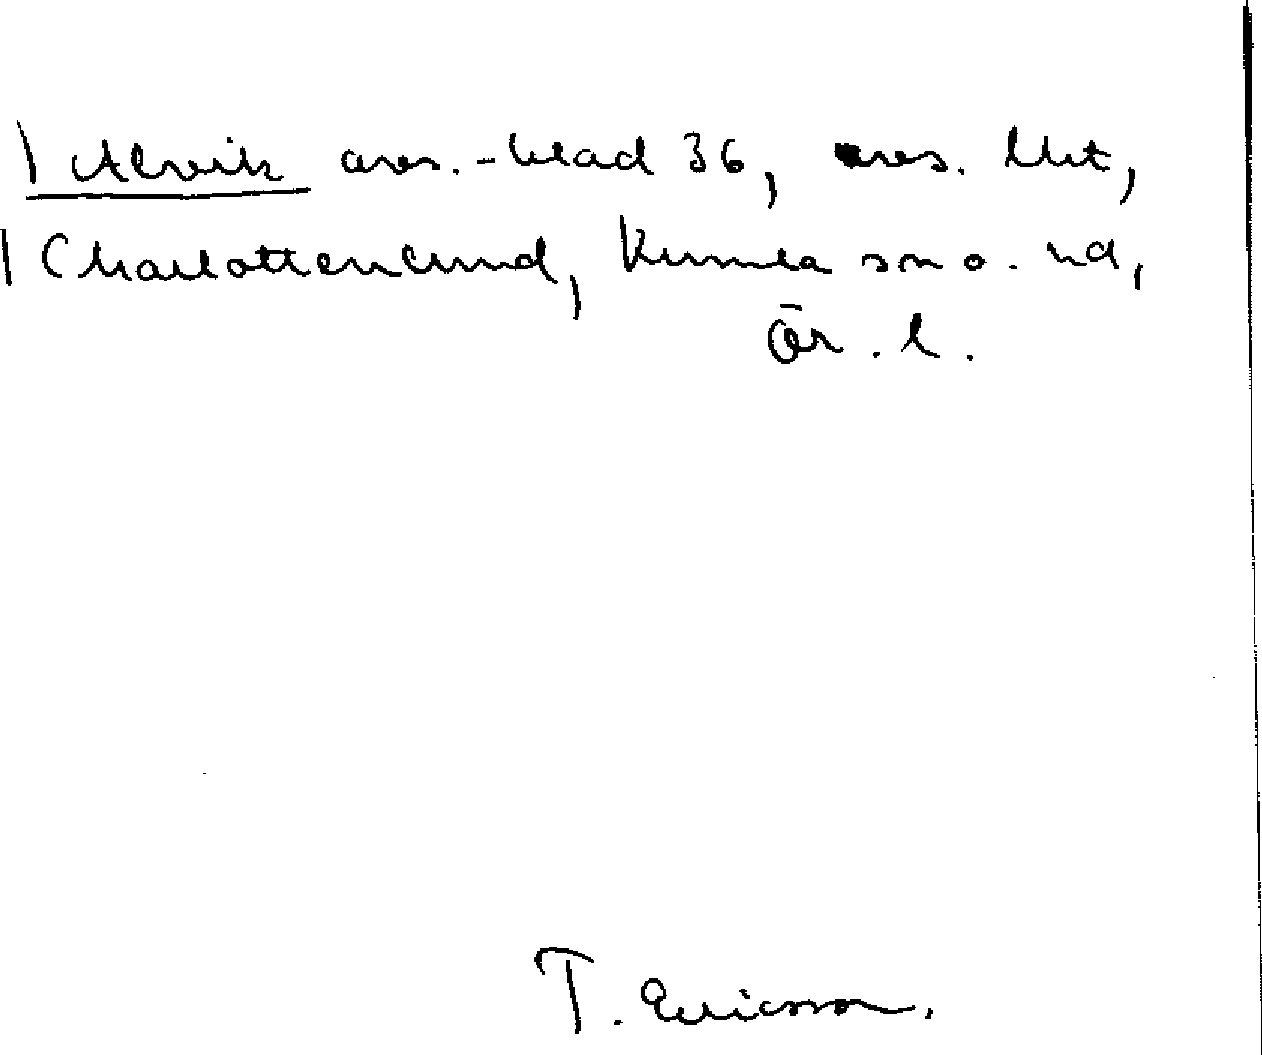 \ Alvik avs.-blad 36, avs. lht,
| Charlottenlund, Kumla sn o. hd,
Ör. l.
T. Ericsson.